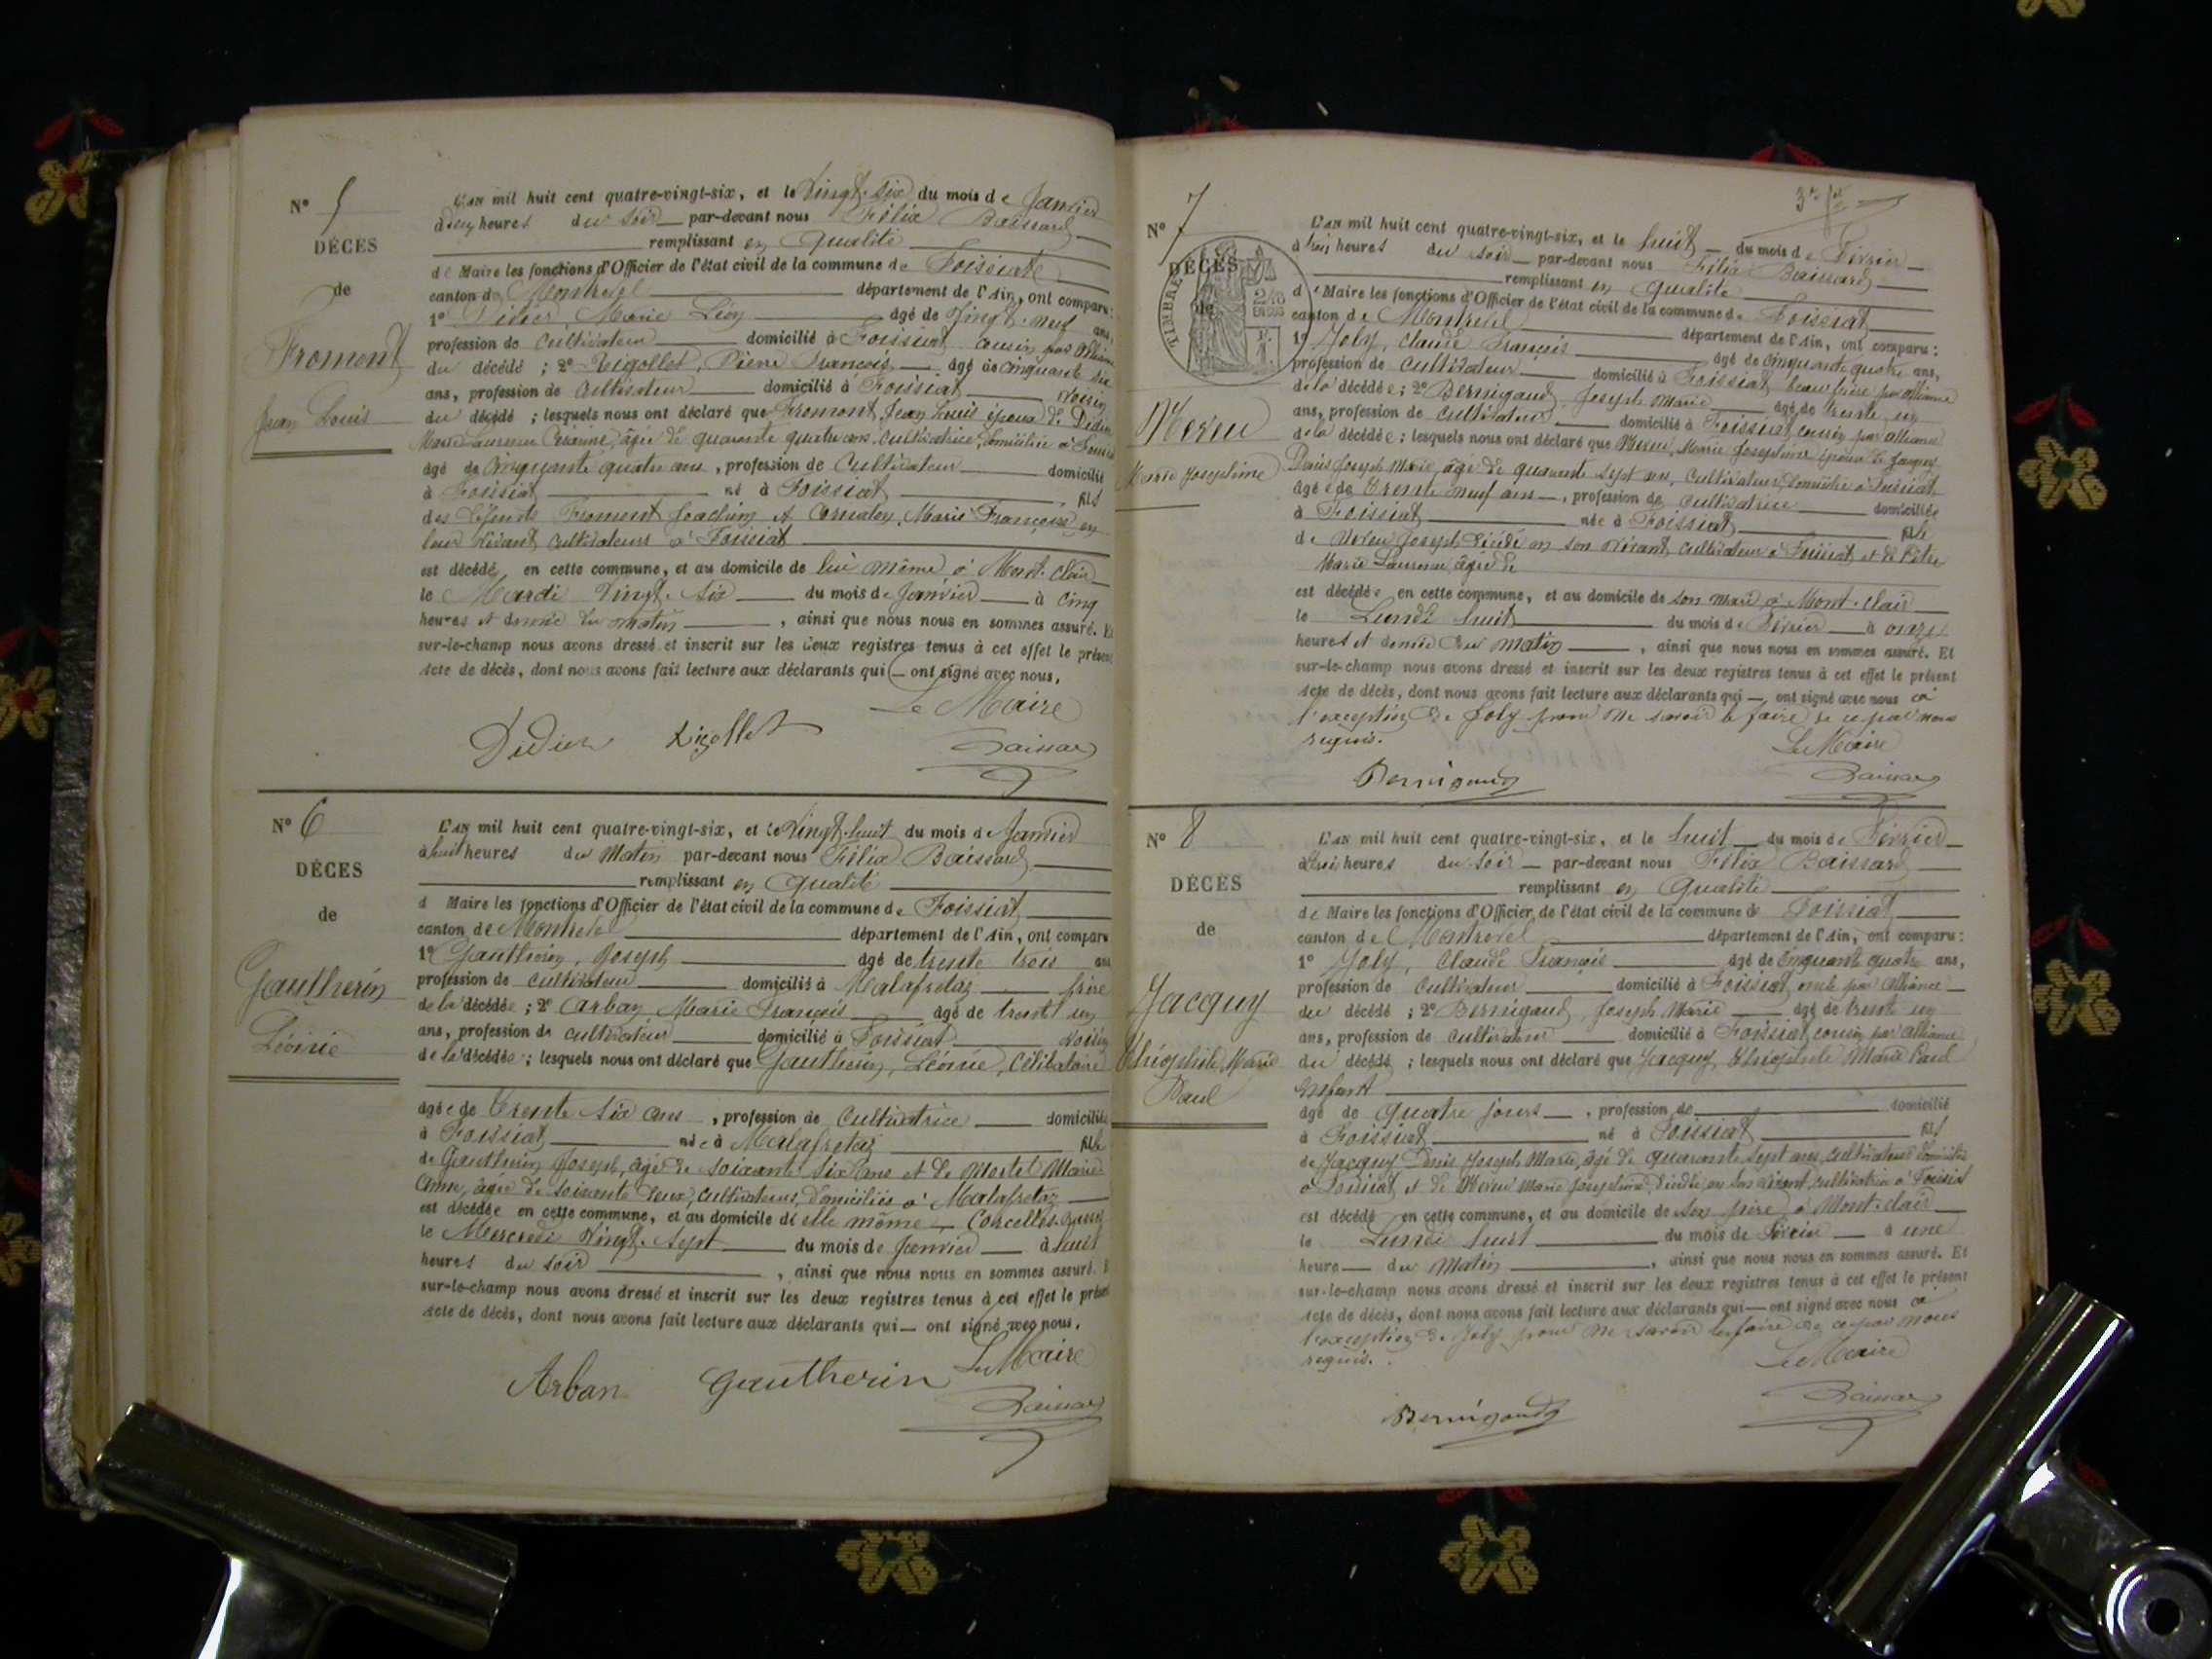 N° 5
DÉCÈS
de
Fromont
Jean Louis
L'AN mil huit cent quatre-vingt-six, et le vingt-six du mois de Janvier
à heures du soir par-devant nous Félix Baissard
remplissant en qualité
de Maire les fonctions d'Officier de l'état civil de la commune de Foissiat
canton de Montrevel département de l'Ain, ont comparu :
1° Didier, Marie Léon âgé de vingt-neuf ans,
profession de cultivateur domicilié à Foissiat cousin par alliance
du décédé ; 2° Rigollet, Pierre François âgé de cinquante six
ans, profession de cultivateur domicilié à Foissiat voisin
du décédé ; lesquels nous ont déclaré que Fromont, Jean Louis époux de Didier
Marie Laurence âgée de quarante quatre ans, cultivatrice, domiciliée à Foissiat
âgé de cinquante quatre ans, profession de cultivateur domicilié
à Foissiat né à Foissiat fils
des défunts Fromont Joachim et Marie Françoise en
leur vivant cultivateurs à Foissiat
est décédé en cette commune, et au domicile de lui même à Mont-clair
le Mardi vingt-six du mois de Janvier à cinq
heures et demie du matin, ainsi que nous nous en sommes assuré. Et
sur-le-champ nous avons dressé et inscrit sur les deux registres tenus à cet effet le présent
acte de décès, dont nous avons fait lecture aux déclarants qui ont signé avec nous,
Le Maire
Didier Rigollet Baissard
N° 6
DÉCÈS
de
Gautherin
Léonie
L'AN mil huit cent quatre-vingt-six, et le vingt-huit du mois de Janvier
à huit heures du matin par-devant nous Félix Baissard
remplissant en qualité
d Maire les fonctions d'Officier de l'état civil de la commune de Foissiat
canton de Montrevel département de l'Ain, ont comparu
1° Gautherin, Joseph âgé de trente trois ans
profession de cultivateur domicilié à Malafretaz frère
de la décédée ; 2° Arban Marie François âgé de trente un
ans, profession de cultivateur domicilié à Foissiat voisin
de la décédée ; lesquels nous ont déclaré que Gautherin, Léonie, Célibataire
âgée de trente six ans, profession de cultivatrice domiciliée
à Foissiat née à Malafretaz fille
de Gautherin Joseph, âgé de soixante six ans et de Morlet Marie
Anne, âgée de soixante deux, cultivateurs, domiciliés à Malafretaz
est décédée en cette commune, et au domicile de elle même Corcelles
le Mercredi vingt-sept du mois de Janvier à huit
heures du soir, ainsi que nous nous en sommes assuré. E
sur-le-champ nous avons dressé et inscrit sur les deux registres tenus à cet effet le présent
acte de décès, dont nous avons fait lecture aux déclarants qui ont signé avec nous,
Le Maire
Arban Gautherin Baissard
N° 7
DÉCÈS
de
TIMBRE
2/10 EN SUS
Marie Joséphine
L'AN mil huit cent quatre-vingt-six, et le huit du mois de Février
à trois heures du soir par-devant nous Félix Baissard
remplissant en qualité
de Maire les fonctions d'Officier de l'état civil de la commune de Foissiat
canton de Montrevel département de l'Ain, ont comparu :
1° Joly, Claude François âgé de cinquante quatre ans,
profession de cultivateur domicilié à Foissiat beau frère par alliance
de la décédée ; 2° Bernigaud Joseph Marie âgé de trente un
ans, profession de cultivateur domicilié à Foissiat cousin par alliance
de la décédée ; lesquels nous ont déclaré que Marie Joséphine épouse de Jacquy
Denis Joseph Marie, âgé de quarante sept ans, cultivateur, domicilié à Foissiat
âgée de trente neuf ans, profession de cultivatrice domiciliée
à Foissiat née à Foissiat fille
de Joseph, décédé en son vivant cultivateur à Foissiat et de
Marie Laurence, âgée de
est décédée en cette commune, et au domicile de son mari à Mont-clair
le Lundi huit du mois de Février à onze
heures et demie du matin, ainsi que nous nous en sommes assuré. Et
sur-le-champ nous avons dressé et inscrit sur les deux registres tenus à cet effet le présent
acte de décès, dont nous avons fait lecture aux déclarants qui ont signé avec nous à
l'exception de Joly pour ne savoir le faire de ce par nous
requis.
Le Maire
Bernigaud Baissard
N° 8
DÉCÈS
de
Jacquy
Théophile Marie
Paul
L'AN mil huit cent quatre-vingt-six, et le huit du mois de Février
à trois heures du soir par-devant nous Félix Baissard
remplissant en qualité
de Maire les fonctions d'Officier de l'état civil de la commune de Foissiat
canton de Montrevel département de l'Ain, ont comparu :
1° Joly, Claude François âgé de cinquante quatre ans,
profession de cultivateur domicilié à Foissiat oncle par alliance
du décédé ; 2° Bernigaud, Joseph Marie âgé de trente un
ans, profession de cultivateur domicilié à Foissiat cousin par alliance
du décédé ; lesquels nous ont déclaré que Jacquy Théophile Marie Paul
enfant
âgé de quatre jours, profession de domicilié
à Foissiat né à Foissiat fils
de Jacquy Denis Joseph Marie, âgé de quarante sept ans, cultivateur domicilié
à Foissiat et de Marie Joséphine, décédée en son vivant, cultivatrice à Foissiat
est décédé en cette commune, et au domicile de son père à Mont-clair
le Lundi huit du mois de Février à une
heure du matin, ainsi que nous nous en sommes assuré. Et
sur-le-champ nous avons dressé et inscrit sur les deux registres tenus à cet effet le présent
acte de décès, dont nous avons fait lecture aux déclarants qui ont signé avec nous à
l'exception de Joly pour ne savoir le faire de ce par nous
requis.
Le Maire
Bernigaud Baissard